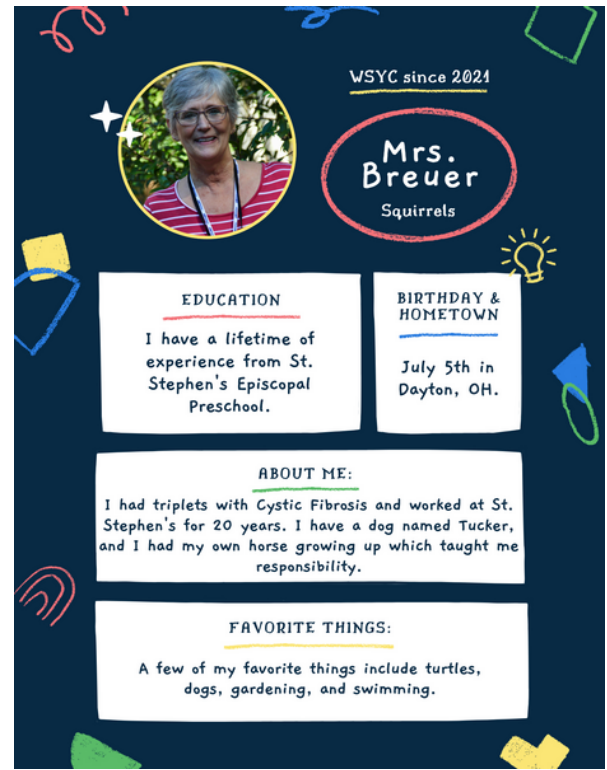 WSYC since 2021
Mrs.
Breuer
Squirrels
EDUCATION
I have a lifetime of
experience from St.
Stephen's Episcopal
Preschool.
BIRTHDAY &
HOMETOWN
July 5th in
Dayton, OH.
ABOUT ME:
I had triplets with Cystic Fibrosis and worked at St.
Stephen's for 20 years. I have a dog named Tucker,
and I had my own horse growing up which taught me
responsibility.
FAVORITE THINGS:
A few of my favorite things include turtles,
dogs, gardening, and swimming.